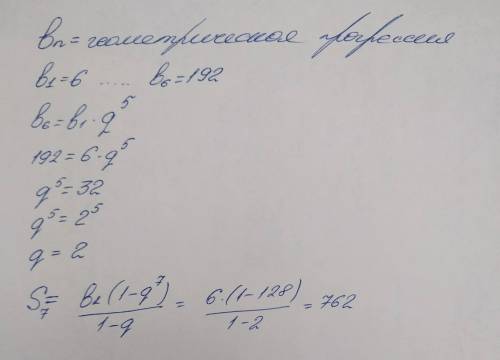 bn = геометрическая прогрессия
b1 = 6 ..... b6 = 192
b6 = b1 · q^5
192 = 6 · q^5
q^5 = 32
q^5 = 2^5
q = 2
S7 = b1 · (1 - q^7) / 1 - q = 6 · (1 - 128) / 1 - 2 = 762